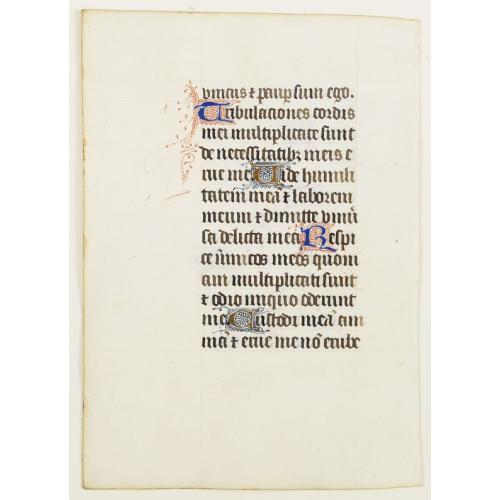 vnicus ⁊ paup sum ego.
Tribulaciones cordis
mei multiplicate sunt
de necessitatibȝ meis e
rue me Uide humili
tatem meā ⁊ laborem
meum ⁊ dimitte vniū
sa delicta mea Respi
ce inimicos meos quoni
am multiplicati sunt
⁊ odio iniquo oderunt
me Custodi meā am
mā ⁊ erue me nō erube